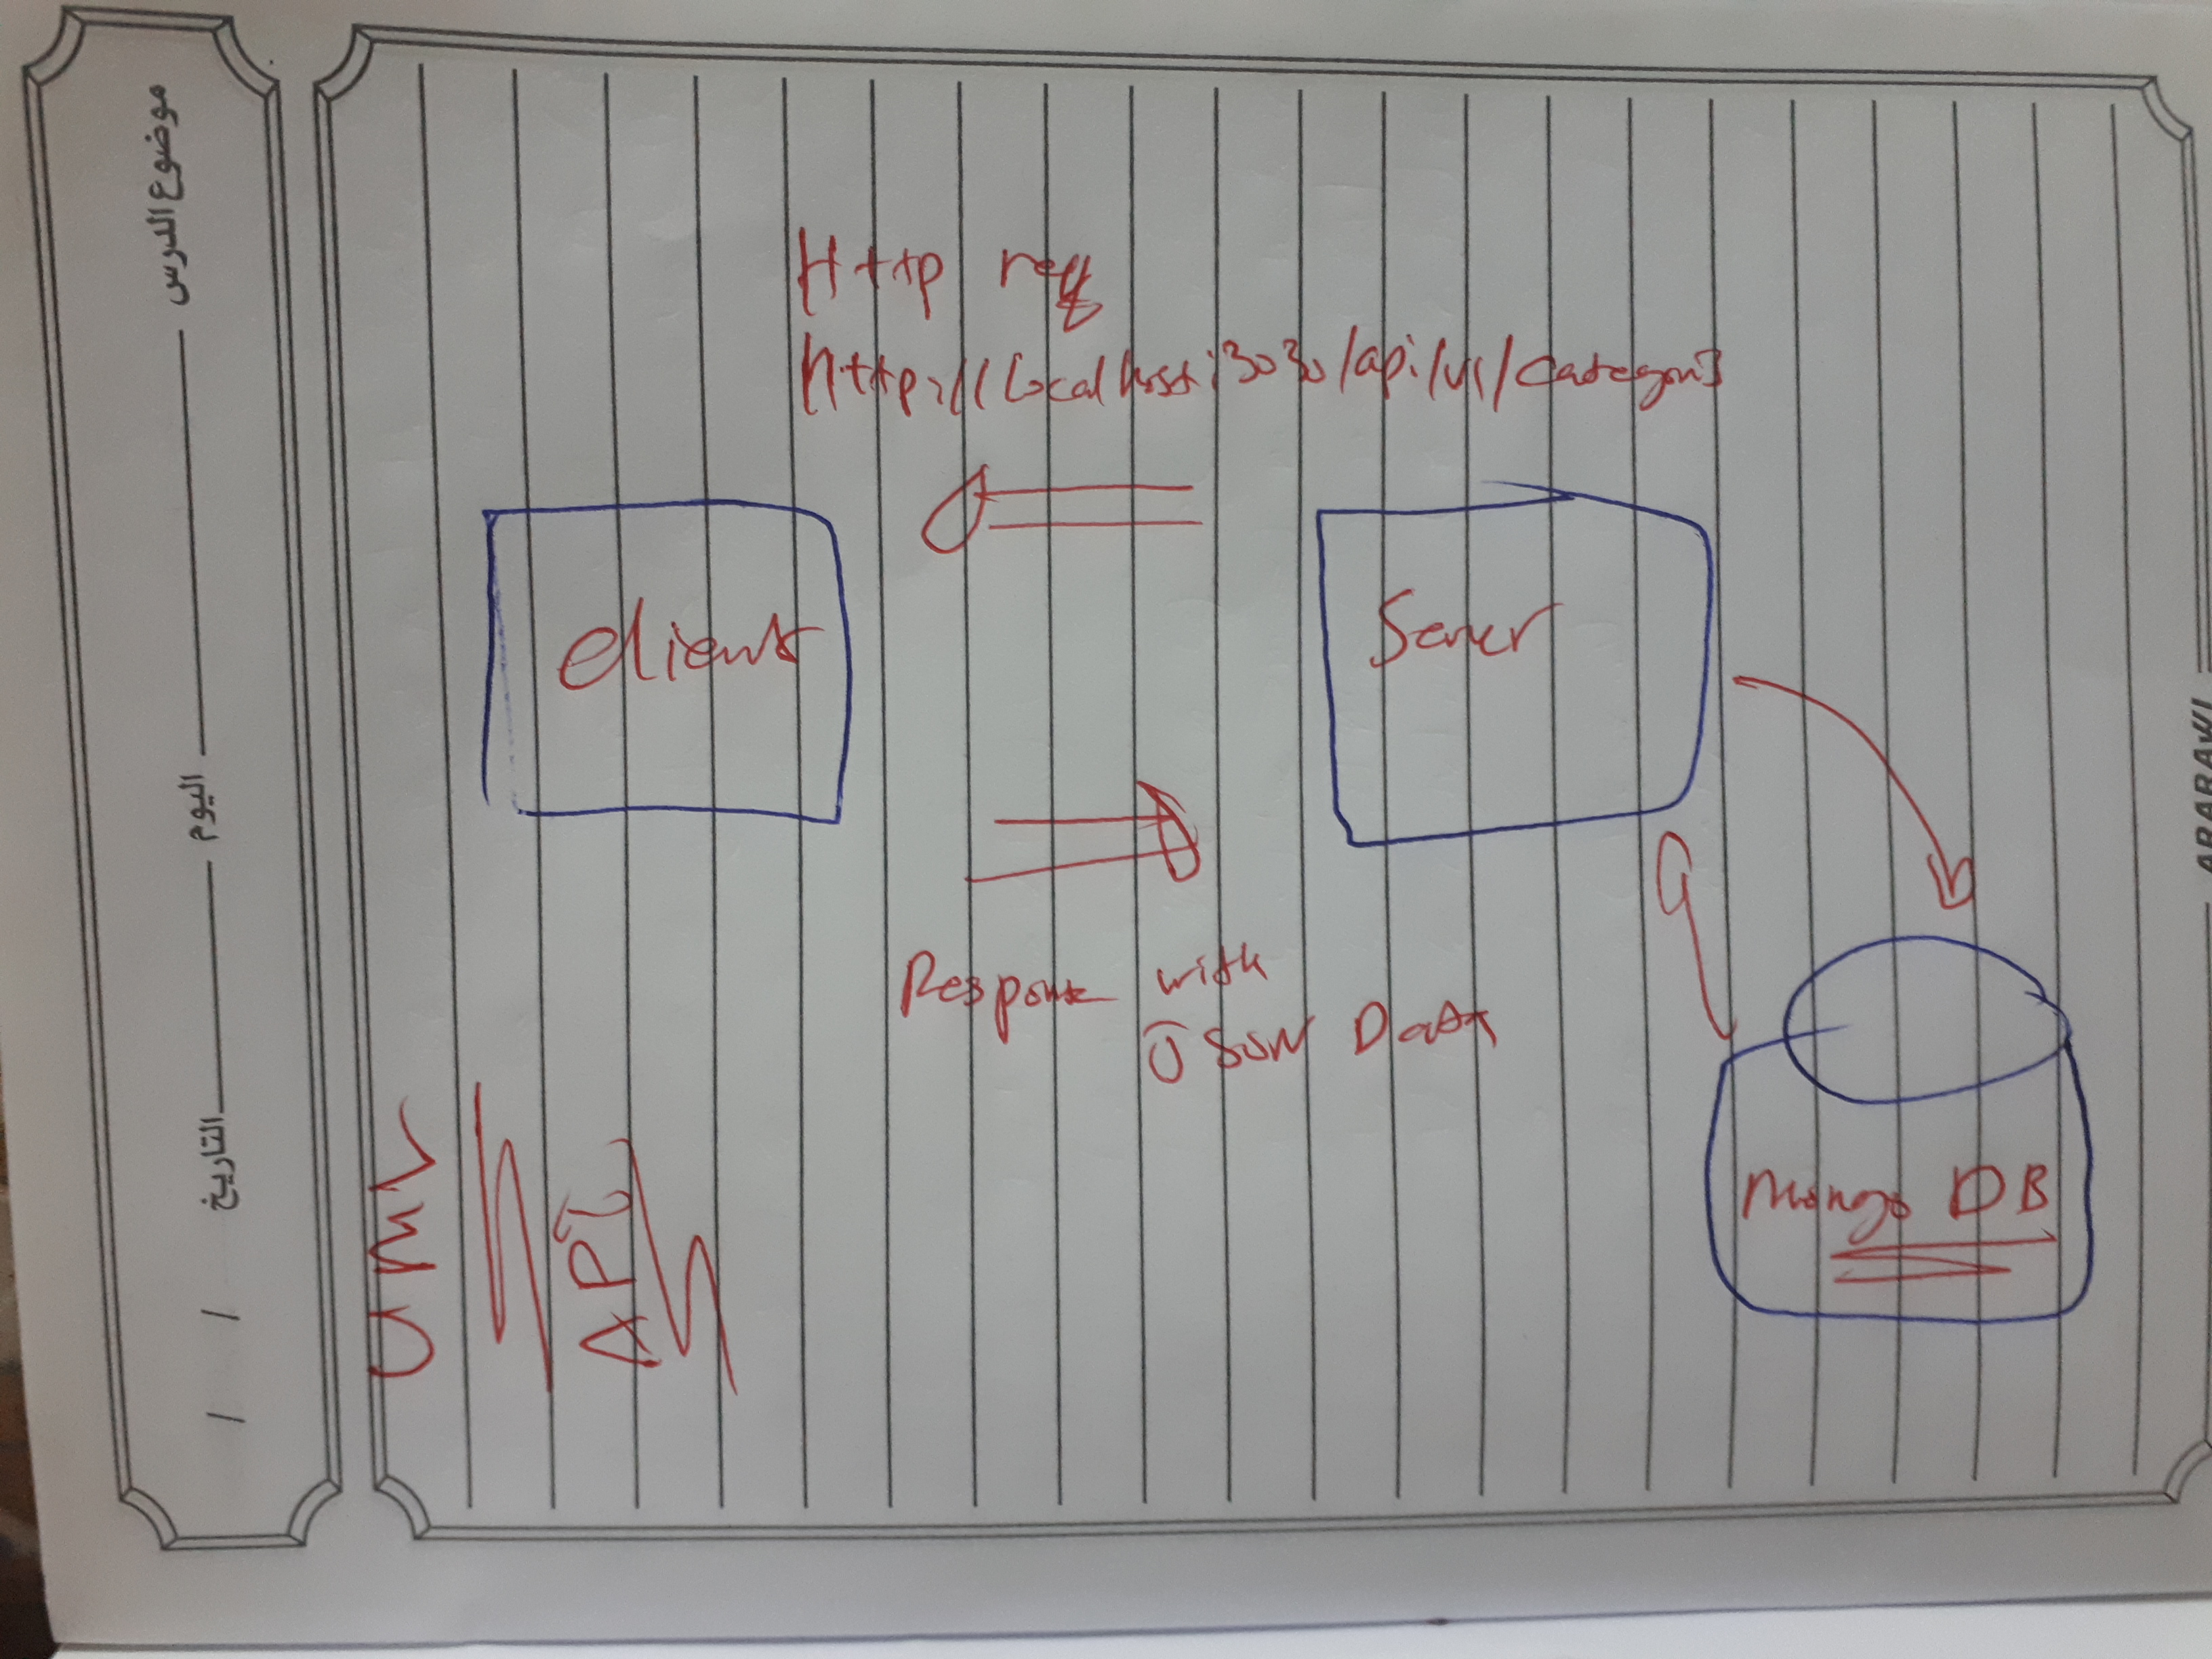 موضوع الدرس
اليوم
التاريخ / /
Http req
http://localhost:3030/api/v1/category
client
Server
Response with
JSON Data
Mongo DB
UML
API